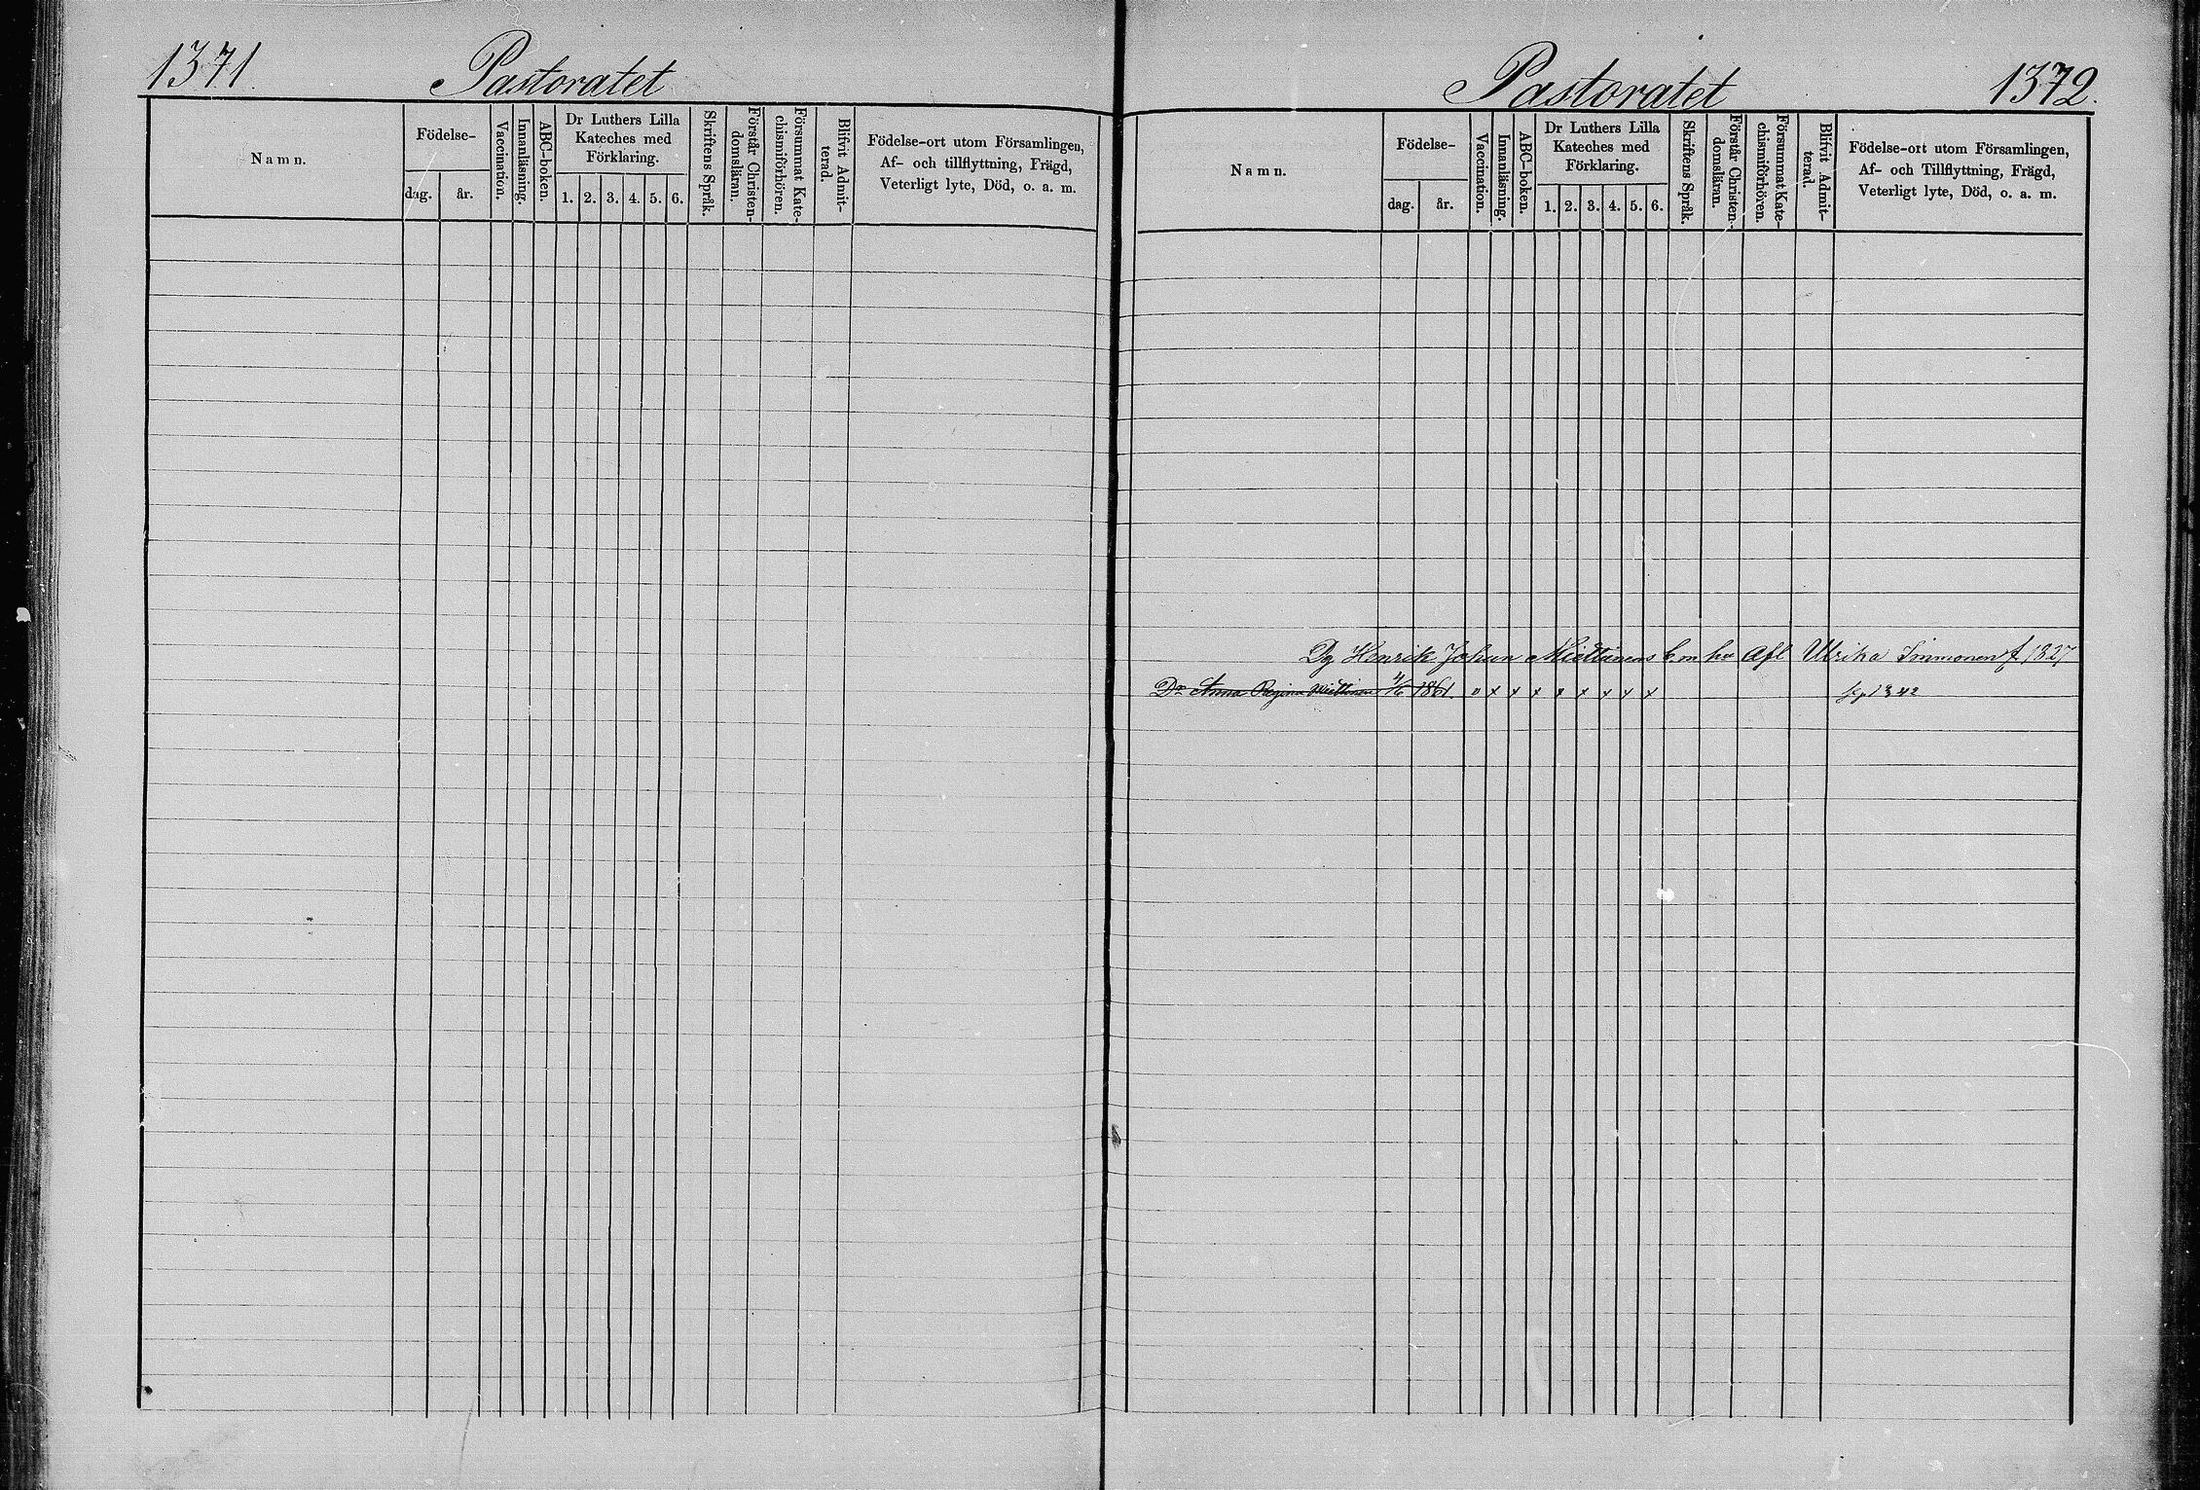 1371. Pastoratet
Namn. Födelse- dag. år. Vaccination. Innanläsning. ABC-boken. Dr Luthers Lilla Kateches med Förklaring. 1. 2. 3. 4. 5. 6. Skriftens Språk. Förstår Christen-domsläran. Försummat Kate-chismiförhören. Blifvit Admit-terad. Födelse-ort utom Församlingen, Af- och tillflyttning, Frägd, Veterligt lyte, Död, o. a. m.
Pastoratet 1372.
Namn. Födelse- dag. år. Vaccination. Innanläsning. ABC-boken. Dr Luthers Lilla Kateches med Förklaring. 1. 2. 3. 4. 5. 6. Skriftens Språk. Förstår Christen-domsläran. Försummat Kate-chismiförhören. Blifvit Admit-terad. Födelse-ort utom Församlingen, Af- och Tillflyttning, Frägd, Veterligt lyte, Död, o. a. m.
Henrik Johan Miettinens Afl Ulrika Immonen f 1327
Dr Anna Regina Miettinen 4/6 1861. x x x x x x x x 1342